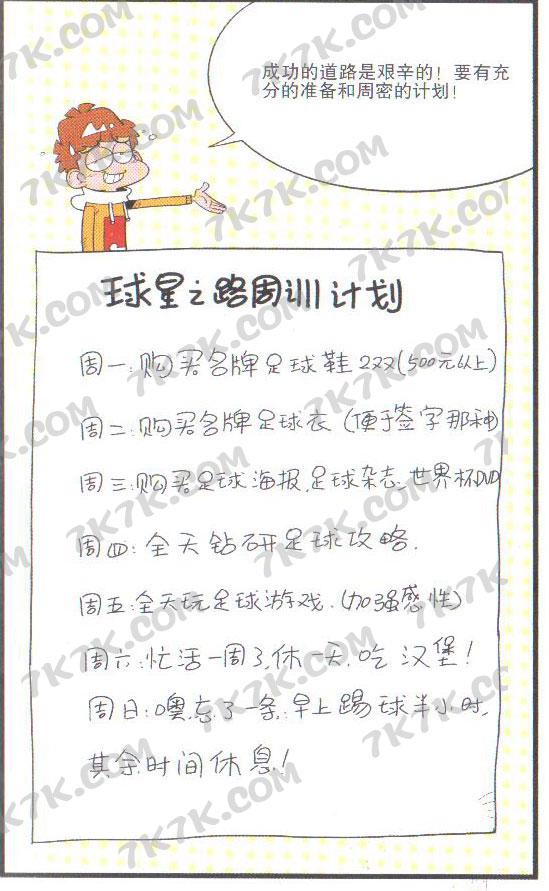 成功的道路是艰辛的！要有充
分的准备和周密的计划！
球星之路周训计划
周一:购买名牌足球鞋2双(500元以上)
周二:购买名牌足球衣(便于签字那种)
周三:购买足球海报.足球杂志.世界杯DVD
周四:全天钻研足球攻略.
周五:全天玩足球游戏.(加强感性)
周六:忙活一周了,休一天.吃汉堡!
周日:噢,忘了一条,早上踢球半小时,
其余时间休息!
7K7K.COM